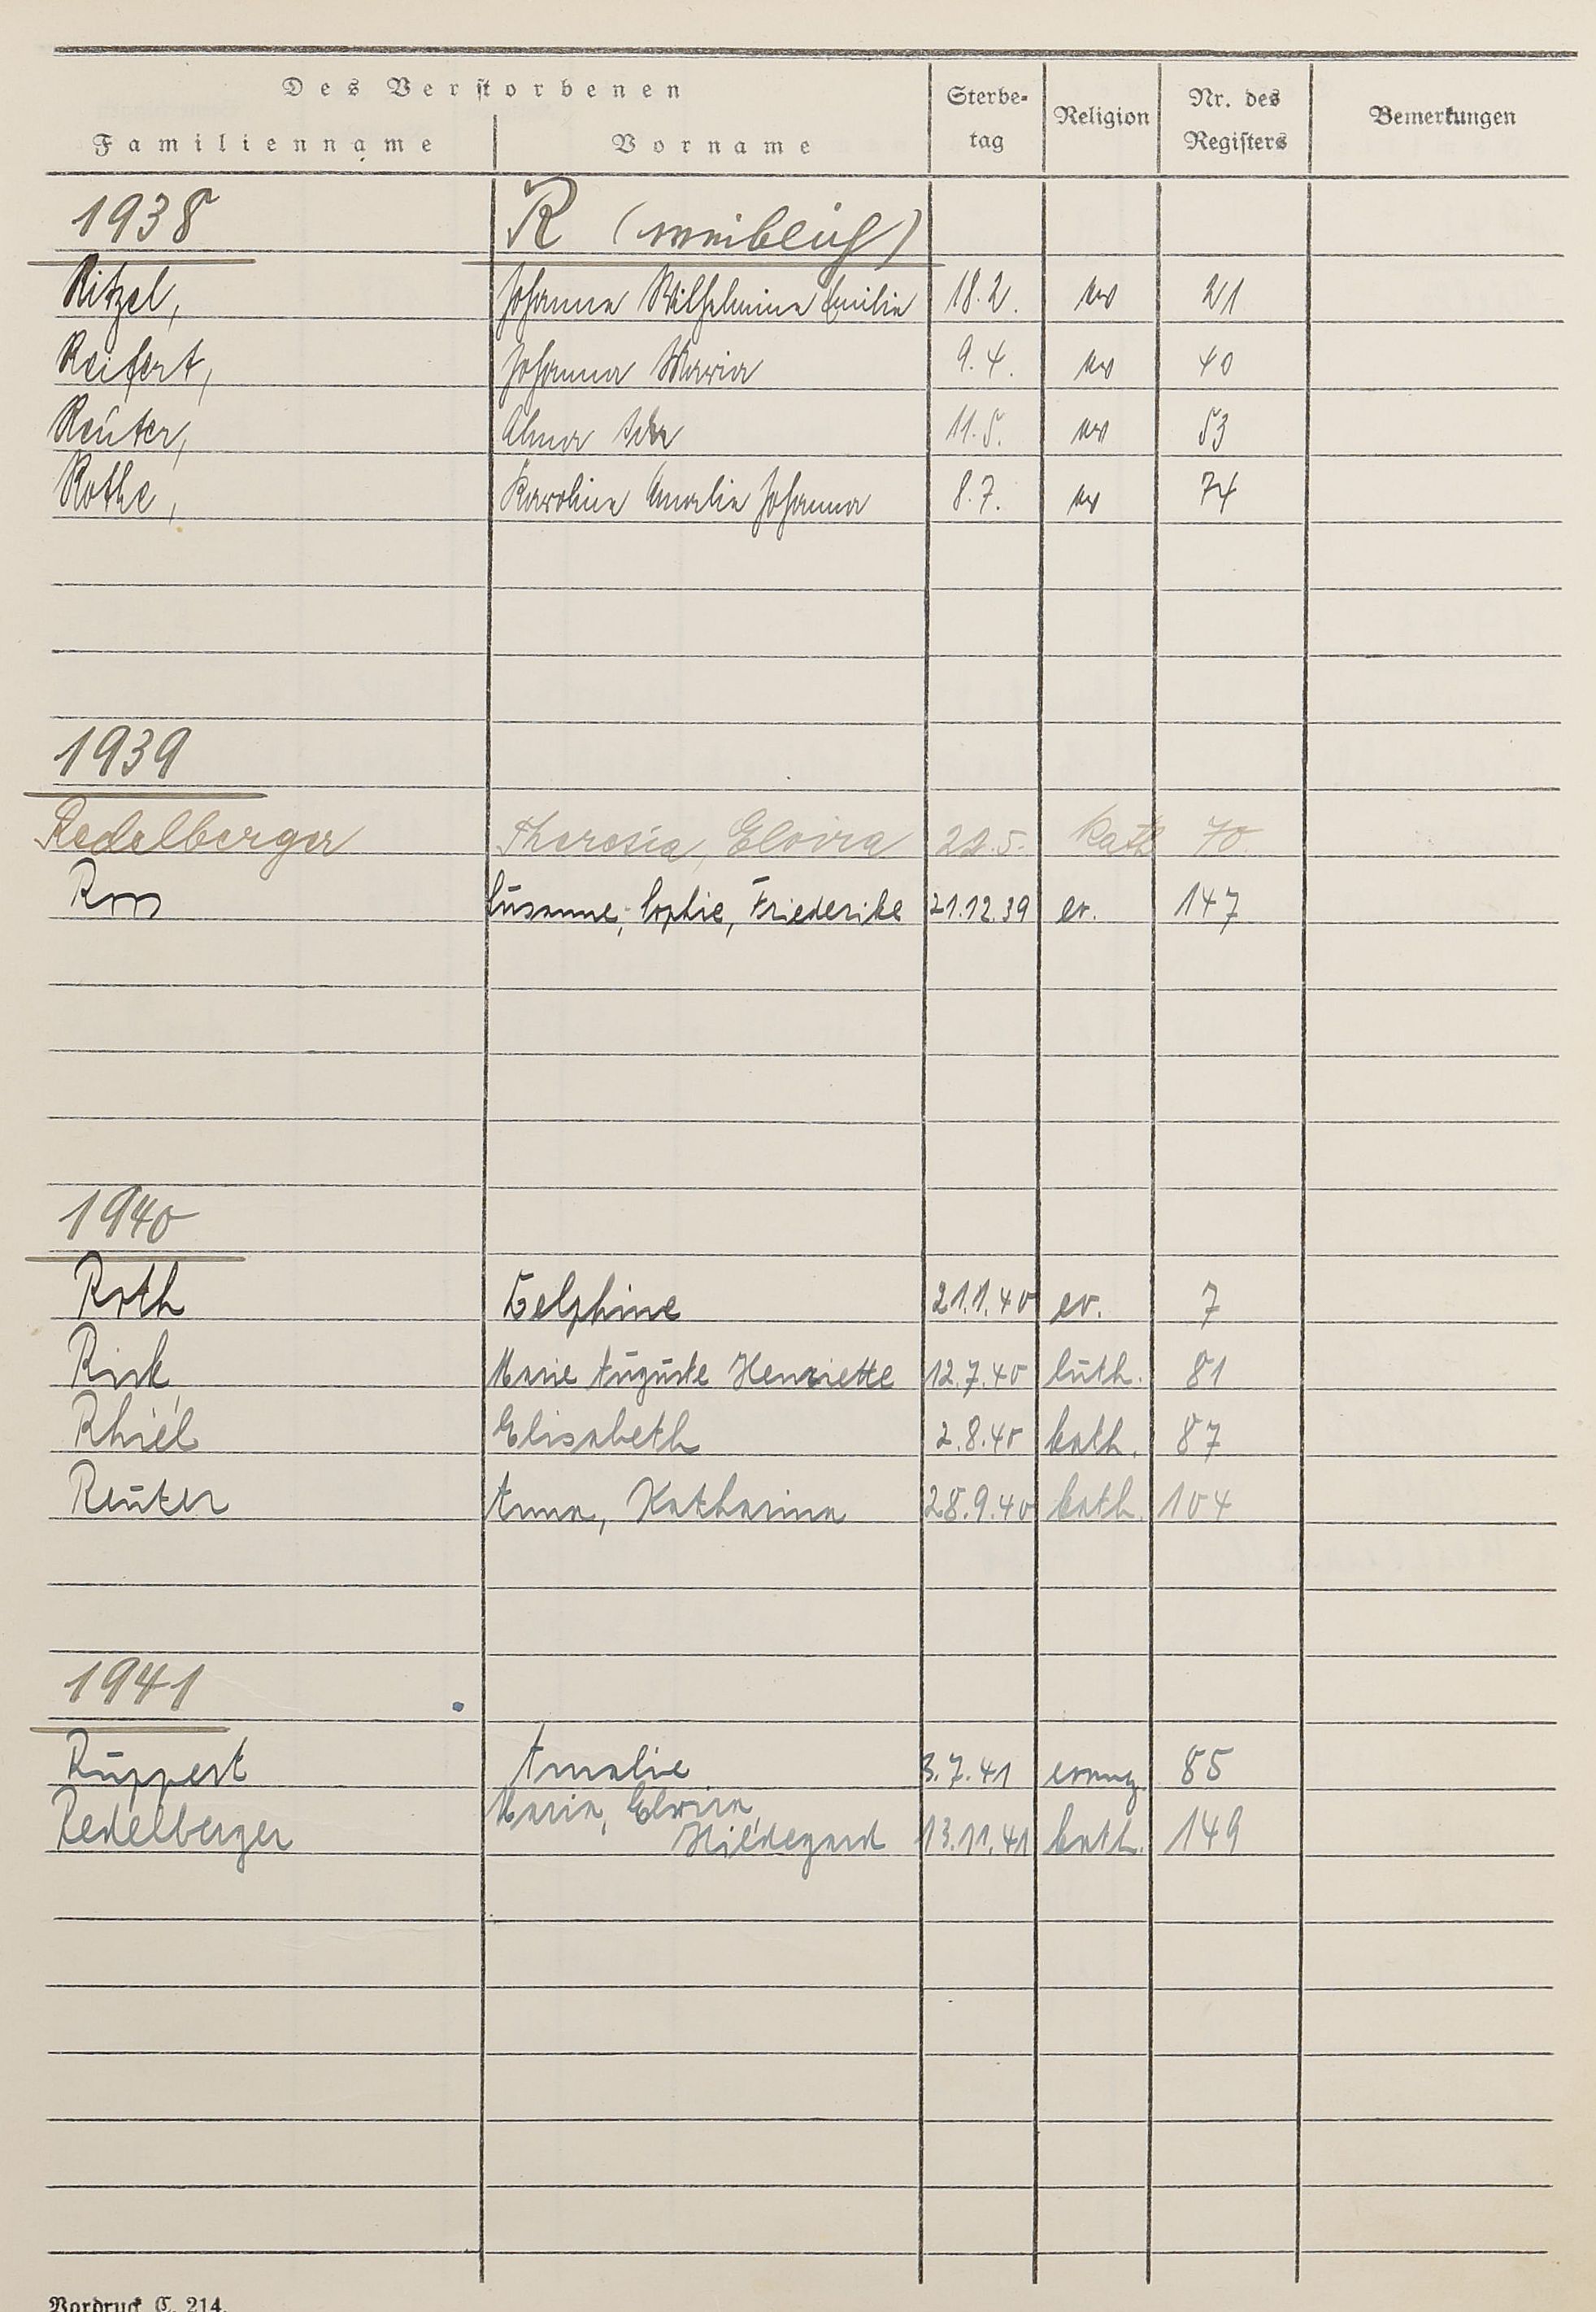 Des Verstorbenen
Familienname Vorname Sterbe-tag Religion Nr. des Registers Bemerkungen
1938 R (weiblich)
Ritzel, Johanna Wilhelmine Emilie 18.2. ev 21
Reifert, Johanna Maria 9.4. ev 40
Reuter, Alma Ida 11.5. ev 53
Rothe, Karoline Amalie Johanna 8.7. ev 74
1939
Redelberger Theresia, Elvira 22.5. Kath 70
Roos Susanne, Sophie, Friederike 21.12.39 ev. 147
1940
Roth Delphine 21.1.40 ev. 7
Marie Auguste Henriette 12.7.40 luth. 81
Rhiel Elisabeth 2.8.40 kath. 87
Reuter Anna, Katharina 28.9.40 kath. 104
1941
Ruppert Amalie 3.7.41 evang. 85
Redelberger Maria, Elvira, Hildegard 13.11.41 kath. 149
Vordruck C. 214.